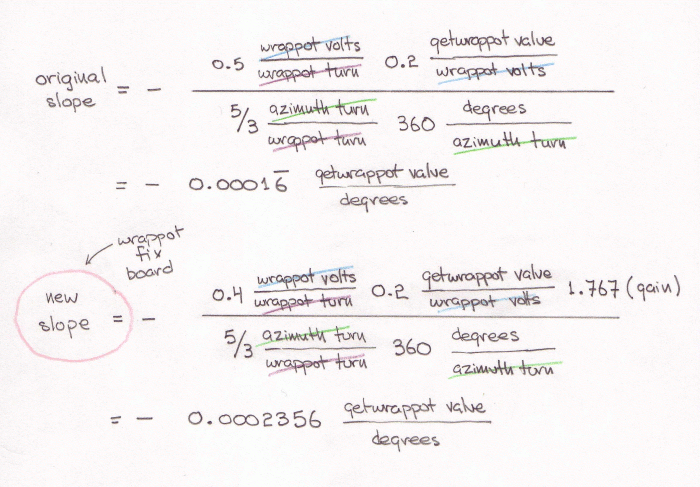 original slope = - 0.5 wrappot volts / wrappot turn 0.2 getwrappot value / wrappot volts
5/3 azimuth turn / wrappot turn 360 degrees / azimuth turn
= - 0.00016̅ getwrappot value / degrees
wrappot fix board
new slope = - 0.4 wrappot volts / wrappot turn 0.2 getwrappot value / wrappot volts 1.767 (gain)
5/3 azimuth turn / wrappot turn 360 degrees / azimuth turn
= - 0.0002356 getwrappot value / degrees